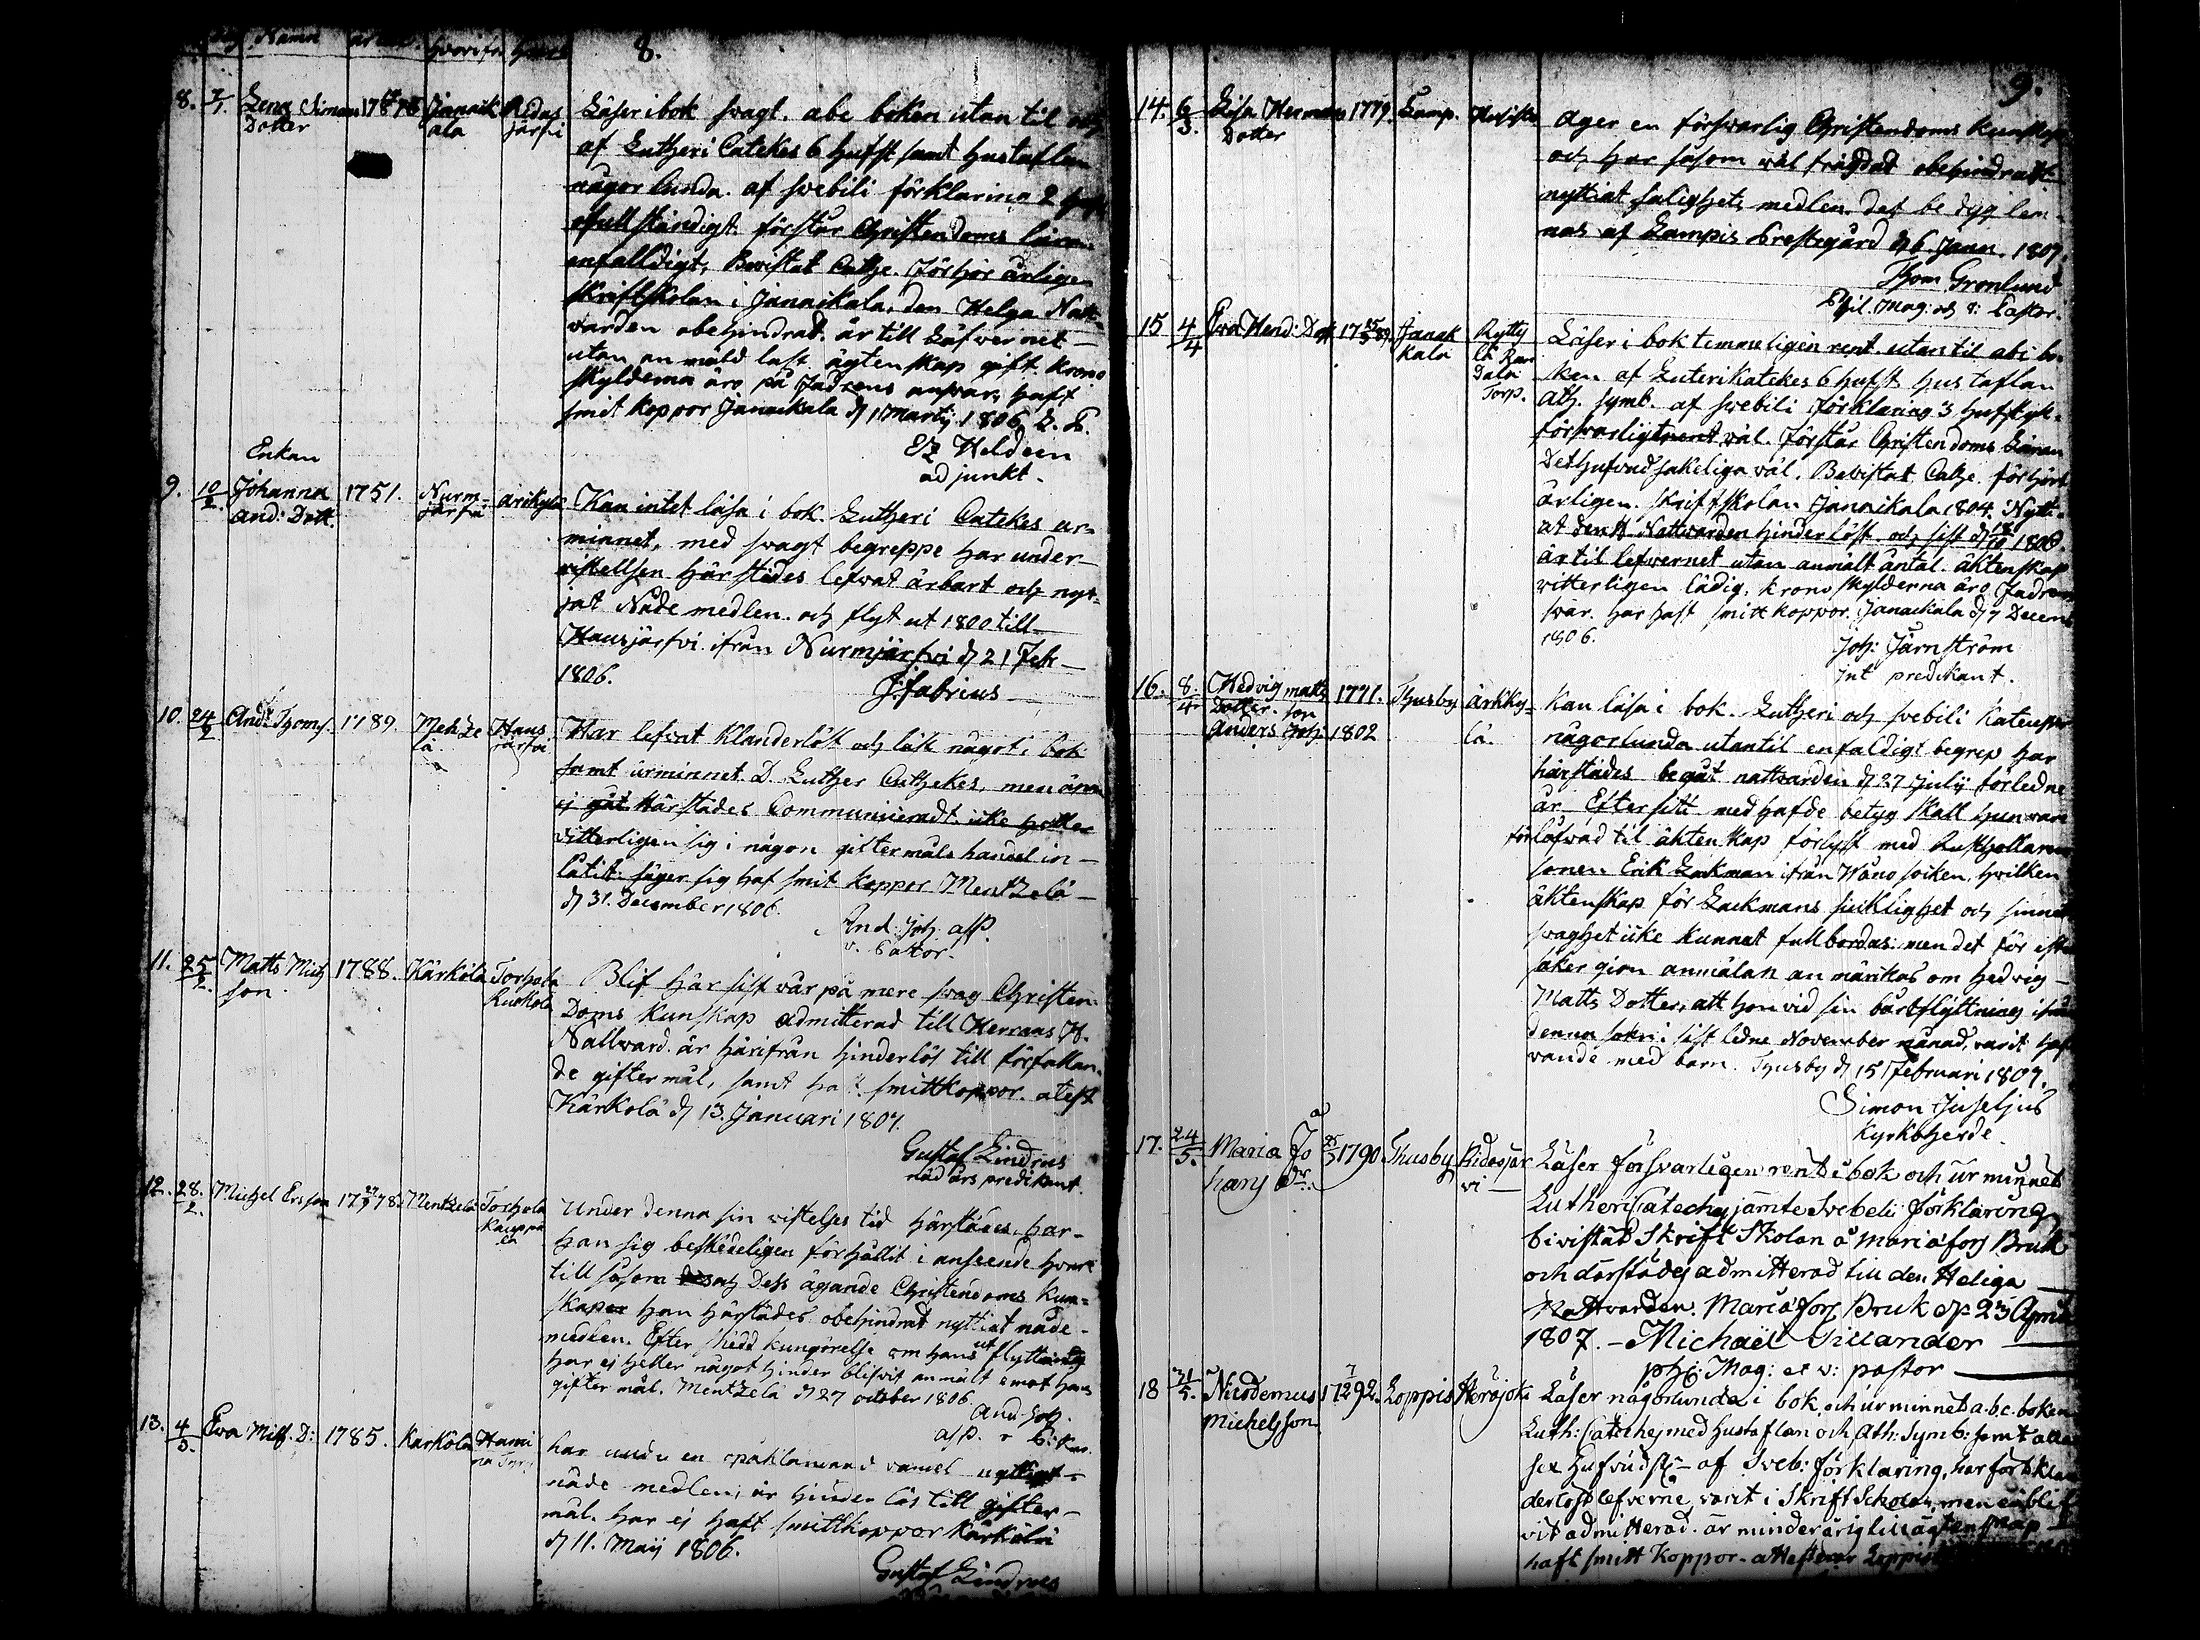 Namn
8.
8. 7/1 Lena Simons 1776 Janaik Ridas Läser i bok svagt. abc boken utan til och
Dotter ala järfvi
af Lutheri Catekes 6 hufst samt hustaflan
någor lunda. af svebili förklaring 2
ofullständigt. förstår Christendoms läran
enfalldigt, Bevistat Cathe. förhör årligen
skriftskolan i Janaikala, den Helga Natt-
varden obehindrat. är till Läfvernet
utan an mäld last ägtenskap gift. krono
skylderna äro på fadrens ansvar, haft
smit koppor Janaikala d 1 Martij 1806. L. S.
Heldeen
adjunkt.
Enkan
9. 10/2 Johanna 1751. Nurm- Arikylä Kan intet läsa i bok. Lutheri Catekes ur-
And: Dott. järfvi
minnet, med svagt begreppe har under-
vistellsen härstädes lefvat ärbart och nyt-
jat Nåde medlen. och flyt ut 1800 till
Hausjärfvi ifrån Nurmijärfvi d 21 Feb
1806. J: fabrius
10. 24/2 And: Thoms. 1789. Mentze Haus Har lefvat Klanderlöst och läst något i bok
lä järfvi
samt urminnet D. Luther Cathekes, men ännu
ej gåt Härstädes Communiceradt. icke heller
vitterligen sig i någon giftermåls handel in-
låtit: säger sig haf smit koppor Mentzelä
d 31. December 1806.
And: Joh. asp.
v. Pastor.
11. 25/2 Matts Mich 1788. Kärkölä Torhola
son. Kuskola
Blif här sist vår på mere svag Christen-
Doms kunskap admitterad till Herrans H.
Nattvard. är härifrån hinderlös till förfallan-
de giftermål, samt haft smittkoppor. atest
Kärkölä d 13. Januari 1807.
Gustaf Lindroos
nådårs predikant.
12. 28./2. Michel Ersson 1778. Mentzelä Torhola
Kauppi
lä
Under denna sin vistelses tid härstädes har
han sig beskedeligen förhållit i anseende hvar
till såsom och Dess ägande Christendoms kun-
skaper han härstädes obehindrat nyttiat nåde-
medlen. Efter skedd kungörelse om hans utflyttning
har ej heller något hinder blifvit anmält emot hans
giftermål. Mentzelä d 27 october 1806.
And: Joh.
asp. v P:
13. 4/3. Eva Matts. D: 1785. Karkölä Hami
har under en opaklanderad vandel nyttiat
nåde medlen, är hinder lös till gifter-
mål. har ej haft smittkoppor Kärkölä
d 11. Maij 1806.
Gustaf Lindroos
9.
14. 6/3. Lisa Hermans 1779. Lamp.
Dotter
Äger en försvarlig Christendoms kunskap
och har såsom väl frägdat obehindradt
nyttiat salighets medlen. det be tyg lem-
nas af Lampis Prestegård d 6 Janu. 1807.
Thom Grönlund
Phil. Mag: och v: Pastor.
15 4/4 Eva Hend: Dot 1789. Janak Rytty
kala lä Ran
Dala
Torp.
Läser i bok temmeligen rent. utantil abc bo-
ken af Luteri katekes 6 hufst hustaflan
Ath. symb. af svebili förklaring 3 hufstyk.
försvarligt väl. förstår Christendoms Läran
Det hufvudsakeliga väl. Bevistat Cathe. förhört
årligen. skriftskolan Janaikala 1804. Nytti-
at den H. Nattvarden hinderlöst. och sist d 18/10 1806.
är til lefvernet utan anmält äntal. äktenskap
vitterligen lädig. krono skylderna äro fadrens
svar. har haft smitt koppor. Janaikala d 7 Decem
1806.
Joh: Järnström
Int predikant.
16. 8./4. Hedvig matts 1771. Thusby Ärkky-
Dotter. son lä.
Anders Joh: 1802
Kan läsa i bok. Lutheri och svebili kateuser
någorlunda utantil enfaldigt begrep har
härstädes begåt nattvarden d 27 Julii förledne
år. Efter sitt medhafde betyg skall hun vara
förlofvad til äktenskap förlyst med Rusthollare
sonen Erik Lackman ifrån Wåno socken, hvilken
äktenskap för Lackmans siuklighet och sinnes
svaghet icke kunnat fullbordas: men det för efter
säker given anmälan anmärkes om Hedvig
Matts Dotter, att hon vid sin bårtflyttning ifrån
denna sokn i sist ledne November månad, varit haf
vande med barn. Thusby d 15 Februari 1807.
Simon Juseljus
Kyrkoherde.
17. 24/5. Maria Jo 1790 Thusby Ridasjär
hans Dr. vi
Läser försvarligen rent i bok och ur minnet
Lutheri Cateches jämte Svebeli förklaring
bevistat Skrift Skolan å Mariæfors Bruk
och därstädes admitterad till den Heliga
Nattvarden. Mariæfors Bruk d 23 April
1807. Michaël Tillander
phi: Mag: et v: pastor
18 21/5. Nicodemus 1792. Loppis Herajoki
Michelsson
Läser någorlunda i bok, och ur minnet a.b.c. boken
Luth: Cateches med Hustaflan och Ath: Symb: samt alla
sex Hufvudst: af Sveb: förklaring, har fört klan
derlöst lefverne, varit i Skrift Scholan, men ei blif
vit admitterad. är minderårig till ägtenskap
haft smitt koppor. attesterar Loppis